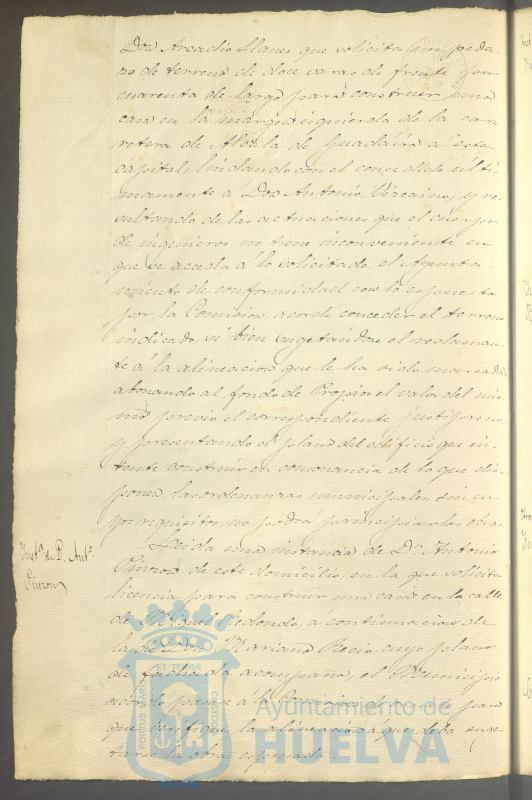 Don Arcadio Llanes que solicita un peda-
zo de terreno de doce varas de frente por
cuarenta de largo para construir una
casa en la margen izquierda de la car-
retera de Alcala de Guadaira a esta
capital, lindando con el concedido últi-
mamente á Don Antonio Vizcaino, y re-
sultando de las actuaciones que el cuerpo
de ingenieros no tiene inconveniente en
que se acceda á lo solicitado, el Ayunta-
miento de conformidad con lo espuesto
por la Comision, acordó conceder el terreno
indicado, si bien sugetandose el reclaman-
te á la alineacion que le ha sido marcada,
abonando al fondo de Propios el valor del mis-
mo previo el correspondiente justiprecio
y presentando el plano del edificio que in-
tente construir en consonancia de lo que dis-
ponen las ordenanzas municipales, sin cu-
yos requisitos no podrá principiar las obras.
Inst.ª de D. Ant.º
Pinzon
Leida una instancia de D. Antonio
Pinzon de este domicilio, en la que solicita
licencia para construir una casa en la calle
de Miguel Redondo, á continuacion de
la de Don Mariano Recio, cuyo plano
de fachada acompaña, el Municipio
acordó pasase á la Comision de para
que verifique la alineacion á que deba suge-
tarse la obra espresada.
PORTUS MARIS
ET TERRAE
CUSTODIA
Ayuntamiento de
HUELVA